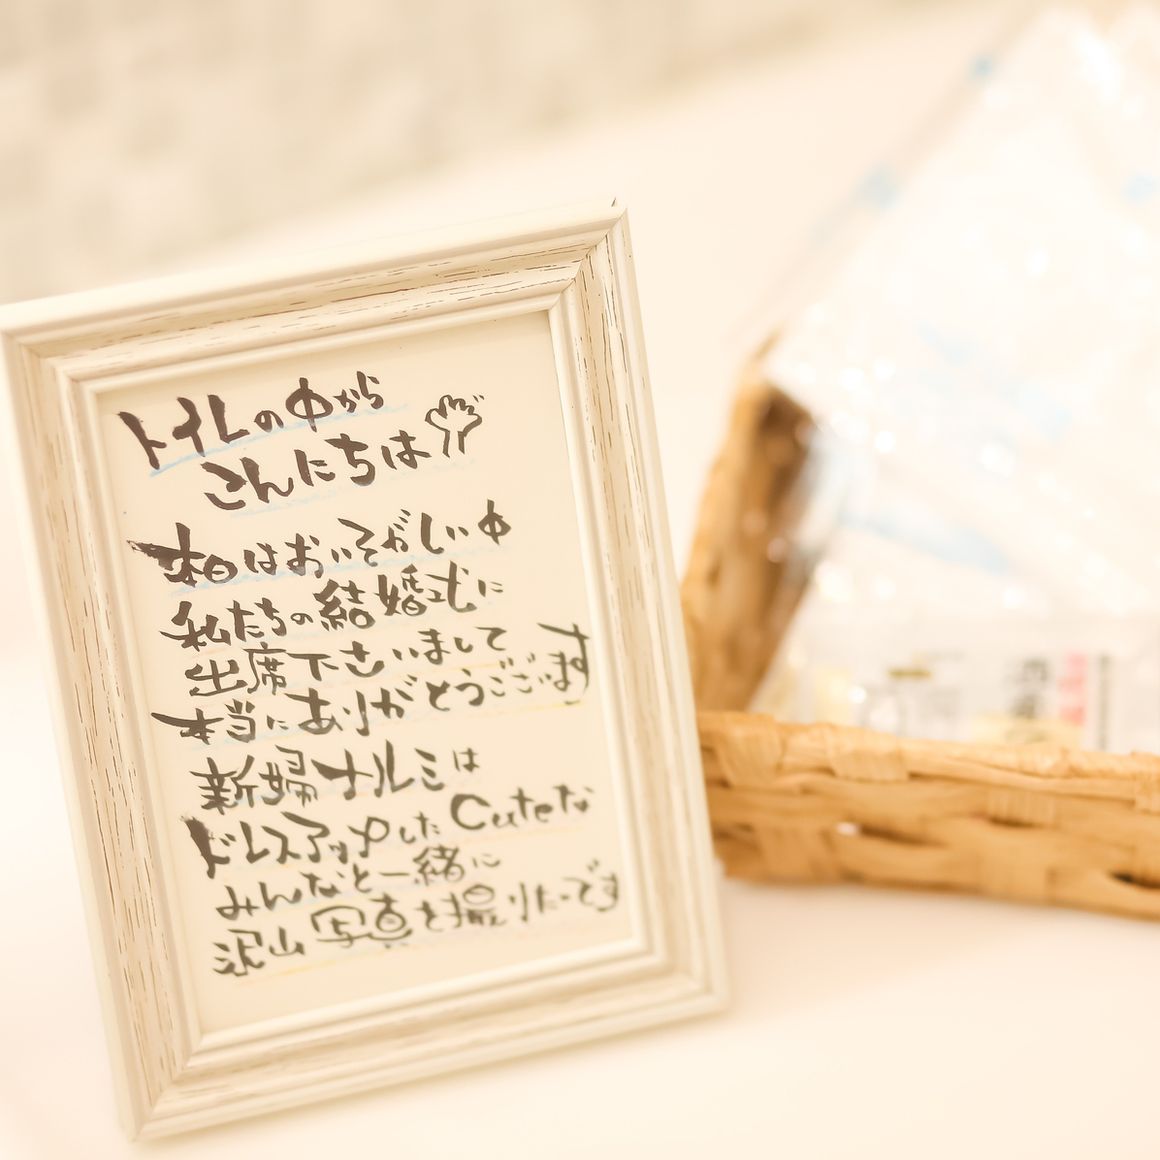 トイレの中から
こんにちは
本日はおいそがしい中
私たちの結婚式に
出席下さいまして
本当にありがとうございます
新婦ナルミは
ドレスアップした Cuteな
みんなと一緒に
沢山写真を撮りたいです